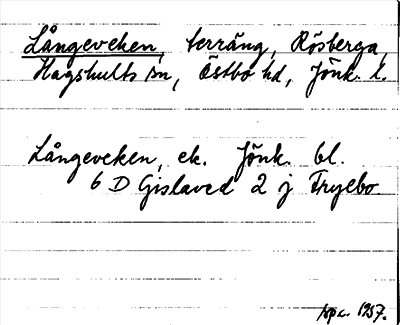 Långeveken, terräng, Rösberga,
Hagshults sn, Östbo hd, Jönk. l.
Långeveken, ek. Jönk. bl.
6 D Gislaved 2 j Tryebo
1957.